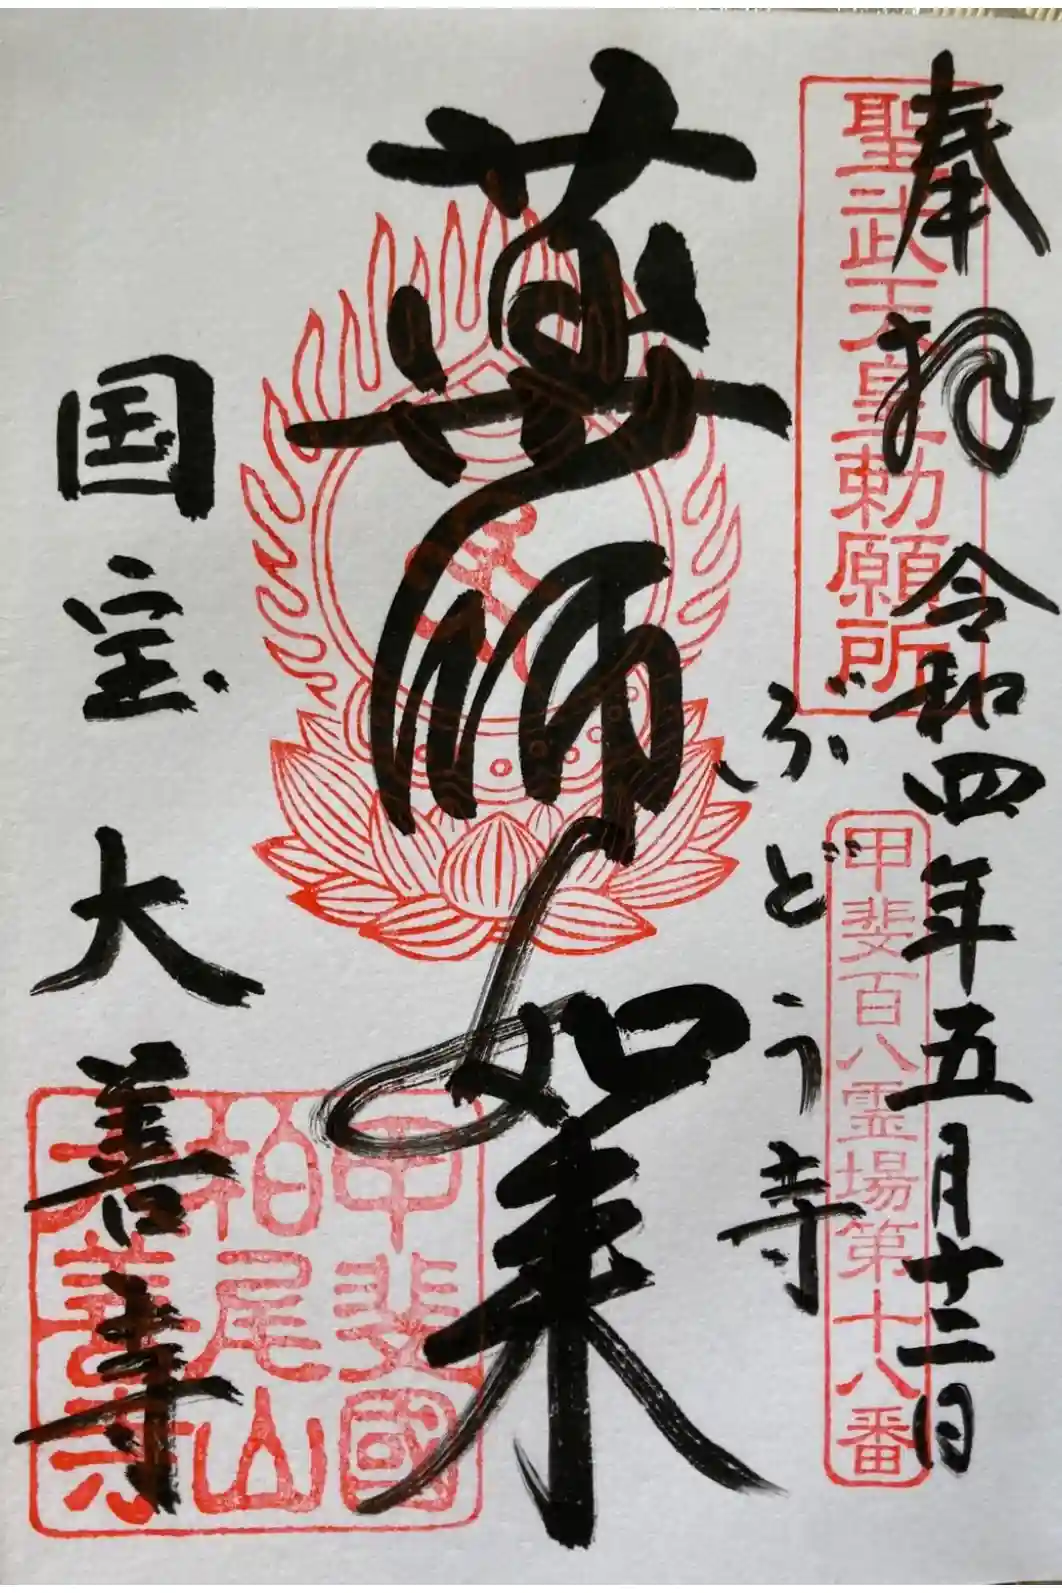 奉拝 令和四年五月十二日
聖武天皇勅願所
甲斐百八霊場第十八番
ぶどう寺
薬師如来
国宝 大善寺
甲斐國
柏尾山
大善寺